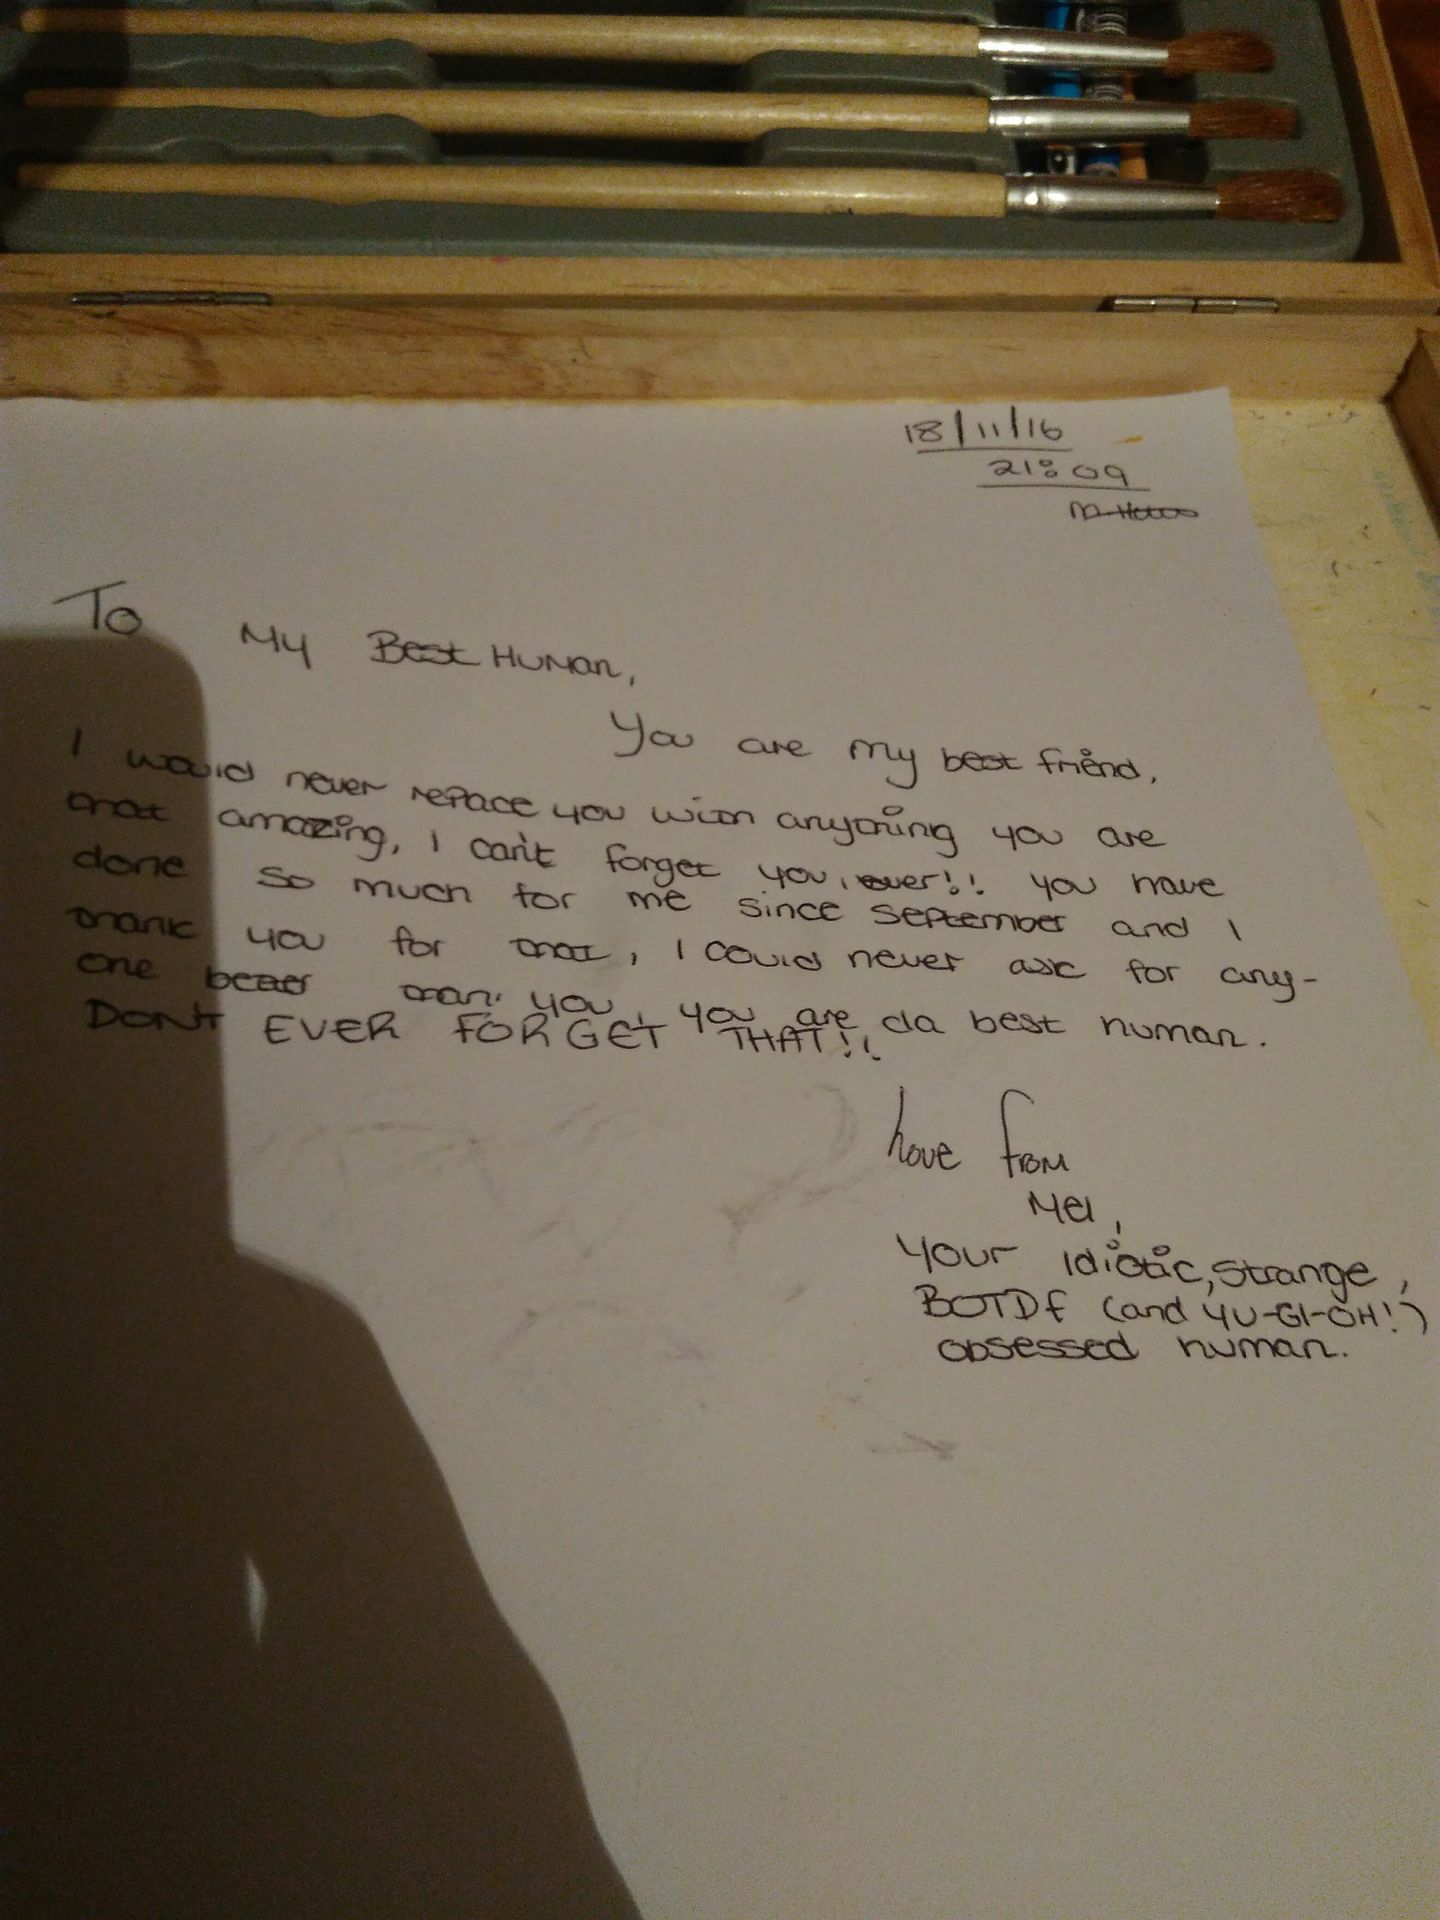 18/11/16
21:09
To My Best Human,
You are my best friend.
I would never repace you with anything you are
that amazing, I can't forget you, ever!! You have
done so much for me since september and I
thank you for that, I could never ask for any-
one better than you, you are da best human.
DON'T EVER FORGET THAT!!
Love from
Mel,
Your idiotic, strange,
BOTDF (and YU-GI-OH!)
obsessed human.